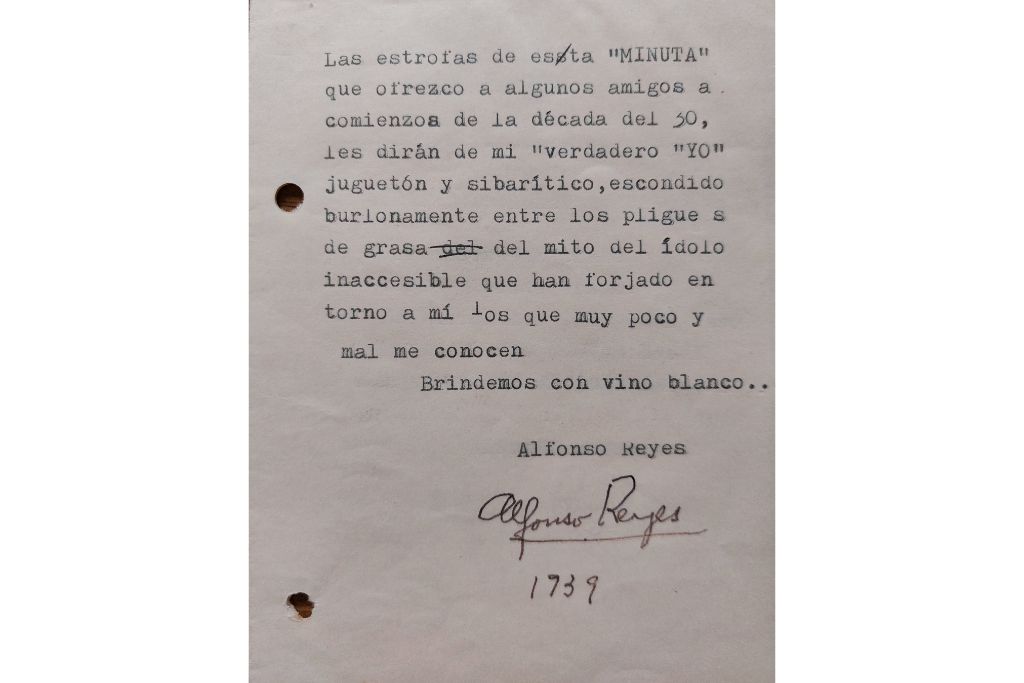 Las estrofas de essta "MINUTA"
que ofrezco a algunos amigos a
comienzos de la década del 30,
les dirán de mi "verdadero "YO"
juguetón y sibarítico,escondido
burlonamente entre los pligue s
de grasa del del mito del ídolo
inaccesible que han forjado en
torno a mí los que muy poco y
mal me conocen
Brindemos con vino blanco..
Alfonso Reyes
Alfonso Reyes
1939